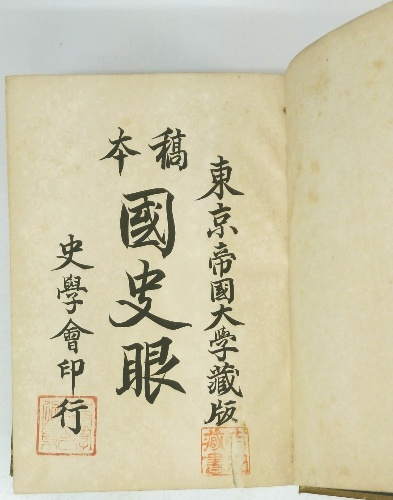 東京帝国大学藏版
稿本
國史眼
史學會印行
藏書